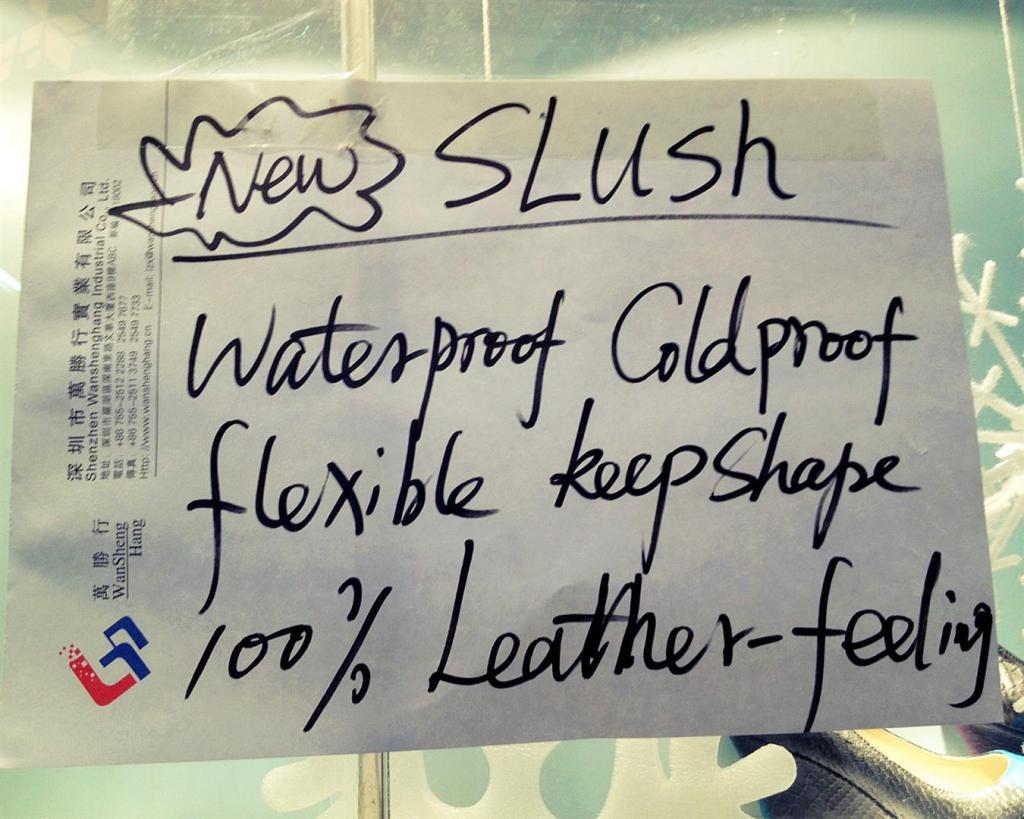 New SLUSh
Waterproof Coldproof
flexible keep shape
100% Leather-feeling
深圳市萬勝行實業有限公司
Shenzhen Wanshenghang Industrial Co., Ltd.
+86 755-2512 2288 2549 7677
+86 755-2511 3749 2549 7733
Http://www.wanshenghang.cn E-mail:
萬勝行
WanSheng
Hang